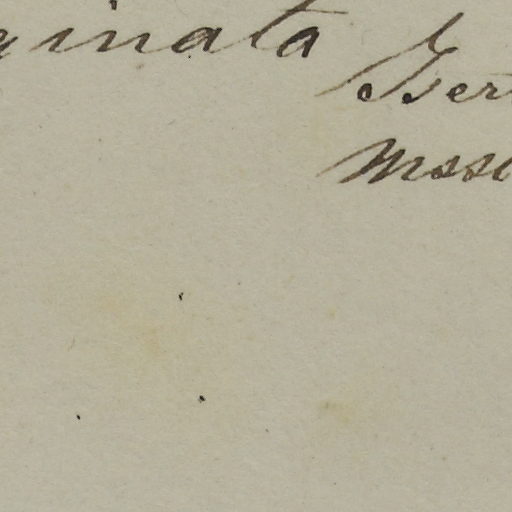 ginata
Ber
Moss